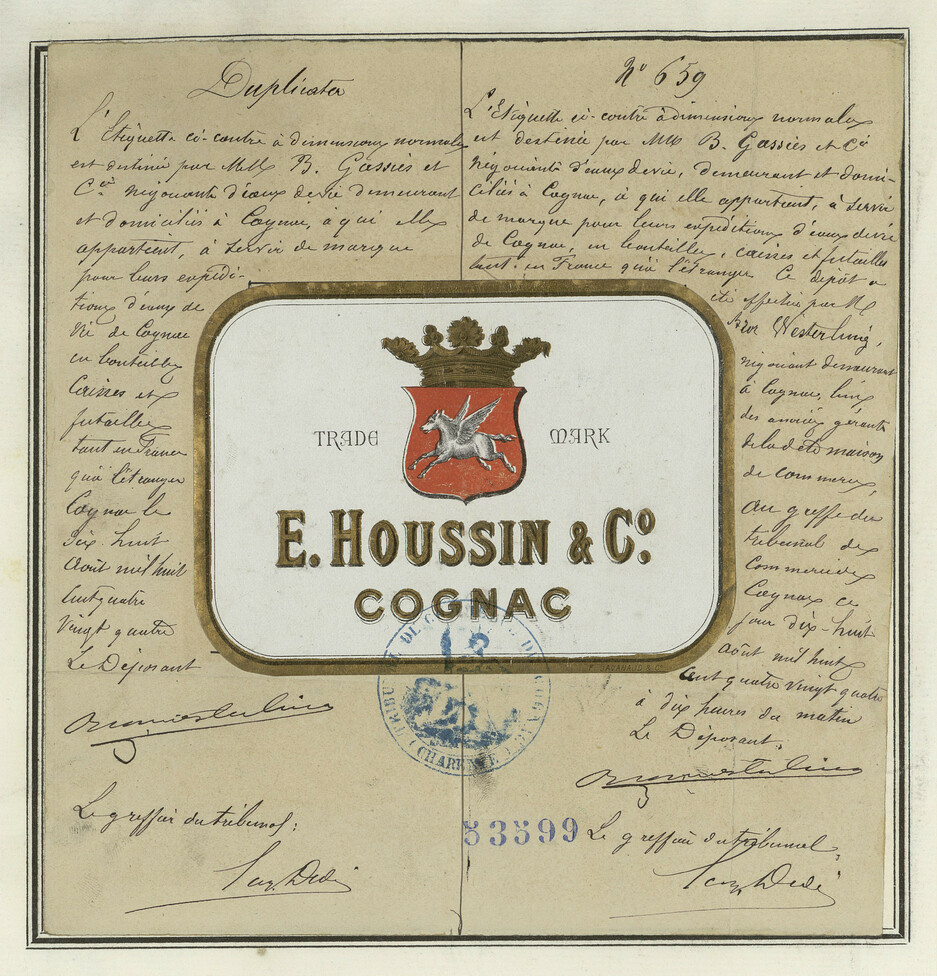 Duplicata
L'Etiquette ci-contre à dimensions normales
est destinée par M.M. B. Gassiès et
Cie Négociants d'eaux de vie demeurant
et domiciliés à Cognac, à qui elle
appartient, à servir de marque
pour leurs expédi-
tions d'eaux de
Vie de Cognac
en bouteilles
Caisses et
futailles
tant en France
qu'à l'étranger
Cognac le
Dix-huit
Août mil huit
cent quatre
Vingt quatre
Le Déposant
Le greffier du tribunal:
No 659
L'Etiquette ci-contre à dimensions normales
est destinée par MM B. Gassiès et Cie
Négociants d'eaux de vie, demeurant et domi-
ciliés à Cognac, à qui elle appartient, à servir
de marque pour leurs expéditions d'eaux de vie
de Cognac, en bouteilles, caisses et futailles
tant en France qu'à l'étranger. Ce dépôt a
été effectué par M
Westerling,
négociant demeurant
à Cognac, l'un
des associés gérants
de la dite maison
de commerce,
au greffe du
tribunal de
Commerce de
Cognac ce
jour dix-huit
août mil huit
cent quatre vingt quatre
à dix heures du matin
Le Déposant,
Le greffier du tribunal,
TRADE MARK
E. HOUSSIN & Co.
COGNAC
TRIBUNAL DE COMMERCE DE COGNAC
(CHARENTE)
53599